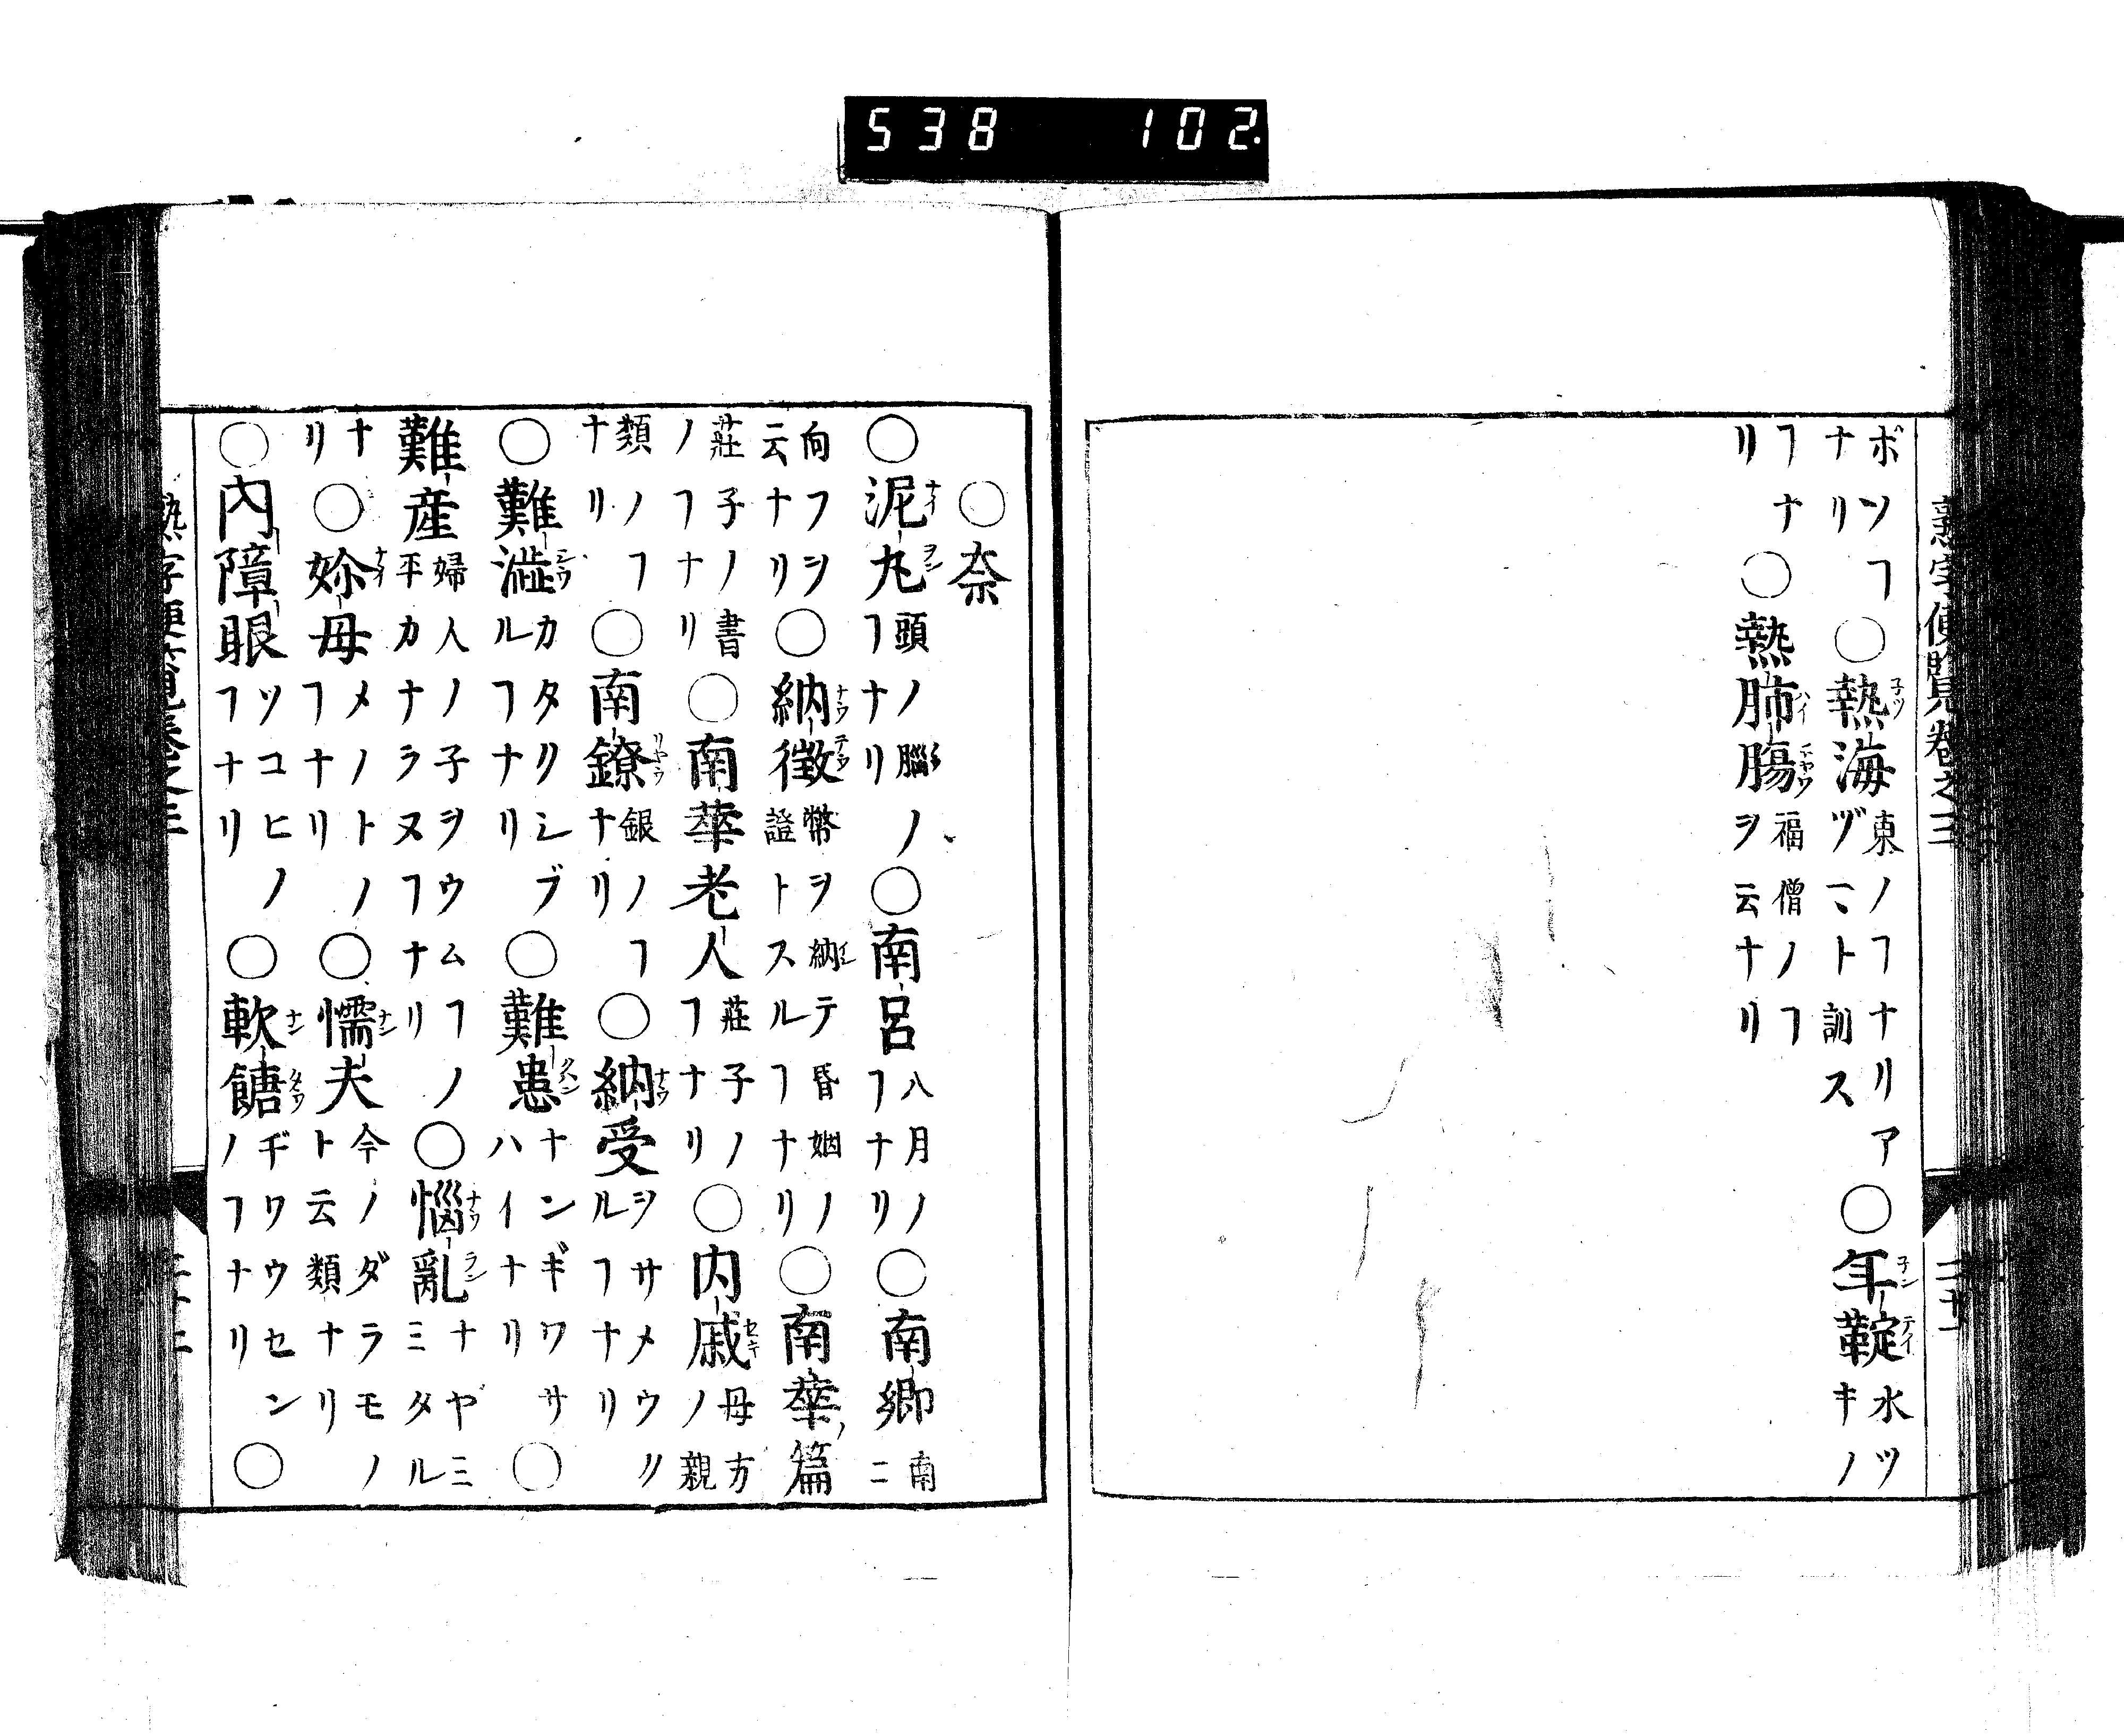 538 102.
熟字便覧巻之三 二十一
ボツヿナリ○熱海東ノヿナリアヅマト訓ス○年鞓水ツキノ
ヿナリ○熱肺腸福僧ノヿヲ云ナリ
○奈
○泥丸頭ノ腦ノヿナリ○南呂八月ノヿナリ○南卿南ニ
向フヲ云ナリ○納徴幣ヲ納テ昏姻ノ證トスルヿナリ○南華篇
莊子ノ書ノヿナリ○南華老人莊子ノヿナリ○内戚母方ノ親
類ノヿナリ○南鐐銀ノヿナリ○納受ヲサメウクルヿナリ
○難澁カタクシブルヿナリ○難患ナンギワサハイナリ○
難産婦人ノ子ヲウムヿノ平カナラヌヿナリ○惱亂ナヤミミタル
ナリ○妳母メノトノヿナリ○懦夫今ノダラモノト云類ナリ
○内障眼ツコヒノヿナリ○軟餹ギワウセンノヿナリ○
熟字便覧巻之三